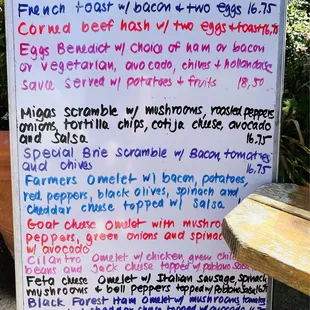 French toast w/ bacon + two eggs 16.75
Corned beef hash w/ two eggs + toast 16.75
Eggs Benedict w/ choice of ham or bacon
or vegetarian, avocado, chives + hollandaise
sauce served w/ potatoes + fruits 18,50
Migas scramble w/ mushrooms, roasted peppers
onions, tortilla chips, cotija cheese, avocado
and salsa. 16.75
Special Brie Scramble w/ Bacon, tomatoes
and chives 16.75
Farmers Omelet w/ bacon, potatoes,
red peppers, black olives, spinach and
cheddar cheese topped w/ Salsa
Goat cheese omelet with mushroo
peppers, green onions and spinac
w/ avocado
Cilantro Omelet w/ chicken, green chile
beans and Jack cheese topped w/ poblano Sauce
Feta cheese Omelet w/ Italian sausage, Spinach,
mushrooms + bell peppers topped w/ Poblano
Black Forest Ham Omelet w/ mushrooms tomatoes
cheddar cheese topped w/ avocado